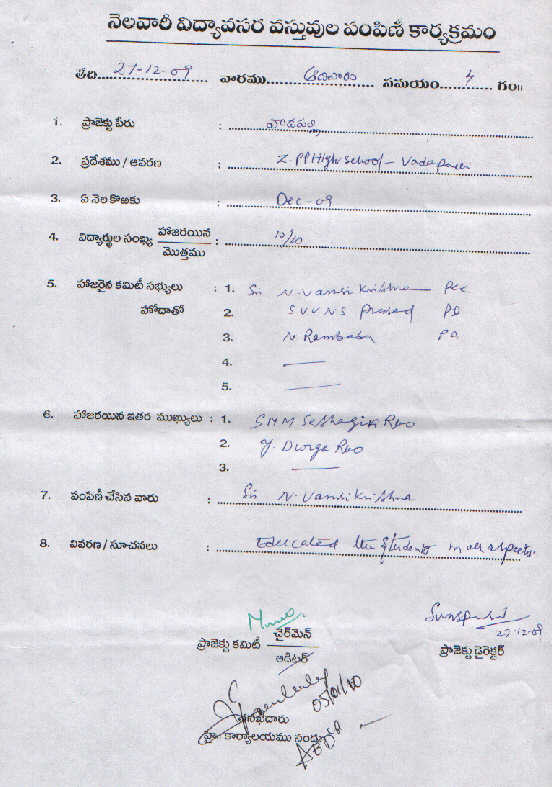 నెలవారీ విద్యావసర వస్తువుల పంపిణీ కార్యక్రమం
తేది...27-12-09... వారము...ఆదివారం... సమయం...4...గం॥
1. ప్రాజెక్టు పేరు : వాడపల్లి
2. ప్రదేశము / ఆవరణ : Z.PP High school - Vadapalli
3. ఏ నెల కొఱకు : Dec-09
4. విద్యార్థుల సంఖ్య హాజరయిన / మొత్తము : 10/20
5. హాజరైన కమిటీ సభ్యులు : 1. Sri N. Vamsi Krishna - PCC
హోదాతో 2. SVVNS Prasad PD
3. N. Rambabu PO
4. ——
5. ——
6. హాజరయిన ఇతర ముఖ్యులు : 1. SMM Seshagiri Rao
2. Y. Durga Rao
3. ——
7. పంపిణీ చేసిన వారు : Sri N. Vamsi Krishna
8. వివరణ / సూచనలు : Educated the students in all aspects.
ప్రాజెక్టు కమిటీ చైర్‌మెన్ / ఆడిటర్
27-12-09
ప్రాజెక్టు డైరెక్టర్
05/01/10
కార్యాలయము